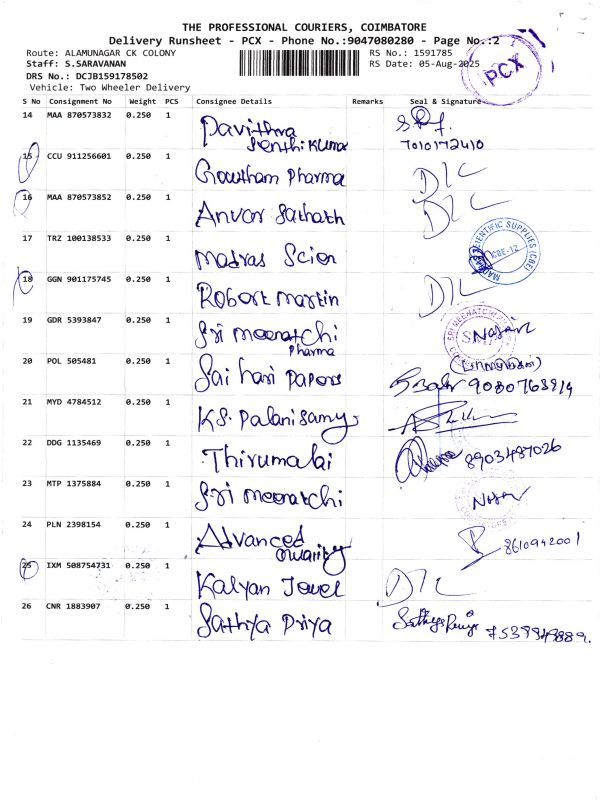 THE PROFESSIONAL COURIERS, COIMBATORE
Delivery Runsheet - PCX - Phone No.:9047080280 - Page No.:2
Route: ALAMUNAGAR CK COLONY RS No.: 1591785
Staff: S.SARAVANAN RS Date: 05-Aug-2025
PCX
DRS No.: DCJB159178502
Vehicle: Two Wheeler Delivery
S No Consignment No Weight PCS Consignee Details Remarks Seal & Signature
14 MAA 870573832 0.250 1 Pavithra
Senthil Kumar
7010172410
15 CCU 911256601 0.250 1 Gowtham Pharma D/C
16 MAA 870573852 0.250 1 Anvar Sathath D/C
17 TRZ 100138533 0.250 1 Madras Scien
SCIENTIFIC SUPPLIES (CBE)
CBE-12
18 GGN 901175745 0.250 1 Robert Martin D/C
19 GDR 5393847 0.250 1 Sri Meenatchi
Pharma
20 POL 505481 0.250 1 Sai hari Papers 9080768214
21 MYD 4784512 0.250 1 K.S. Palanisamy
22 DDG 1135469 0.250 1 Thirumalai 8903487026
23 MTP 1375884 0.250 1 Sri Meenatchi
24 PLN 2398154 0.250 1 Advanced
8610942001
25 IXM 508754731 0.250 1 Kalyan Jewel D/C
26 CNR 1883907 0.250 1 Sathya Priya Sathya Priya